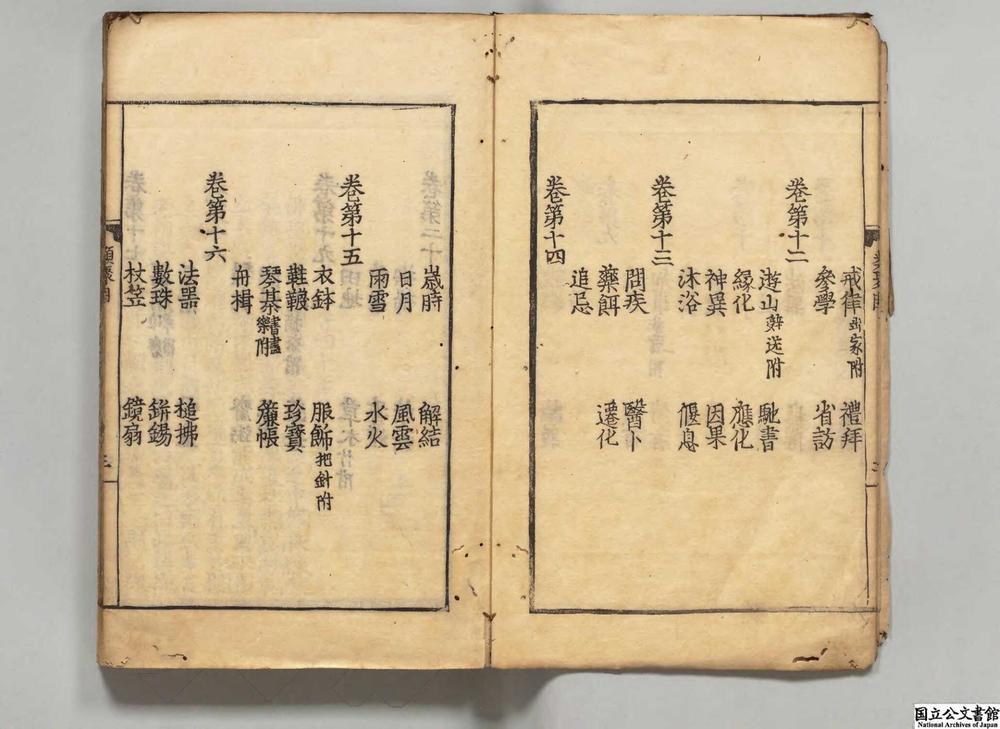 戒律出家附 禮拜
參學 省訪
卷第十二
遊山辭送附 馳書
緣化 應化
神異 因果
沐浴 偃息
卷第十三
問疾 醫卜
藥餌 遷化
追忌
卷第十四
歲時 解結
日月 風雲
雨雪 水火
卷第十五
衣鉢 服飾把針附
鞋韈 珍寶
琴棊書畫樂附 簾帳
舟楫
卷第十六
法器 槌拂
數珠 鉼錫
杖笠 鏡扇
三
国立公文書館
National Archives of Japan